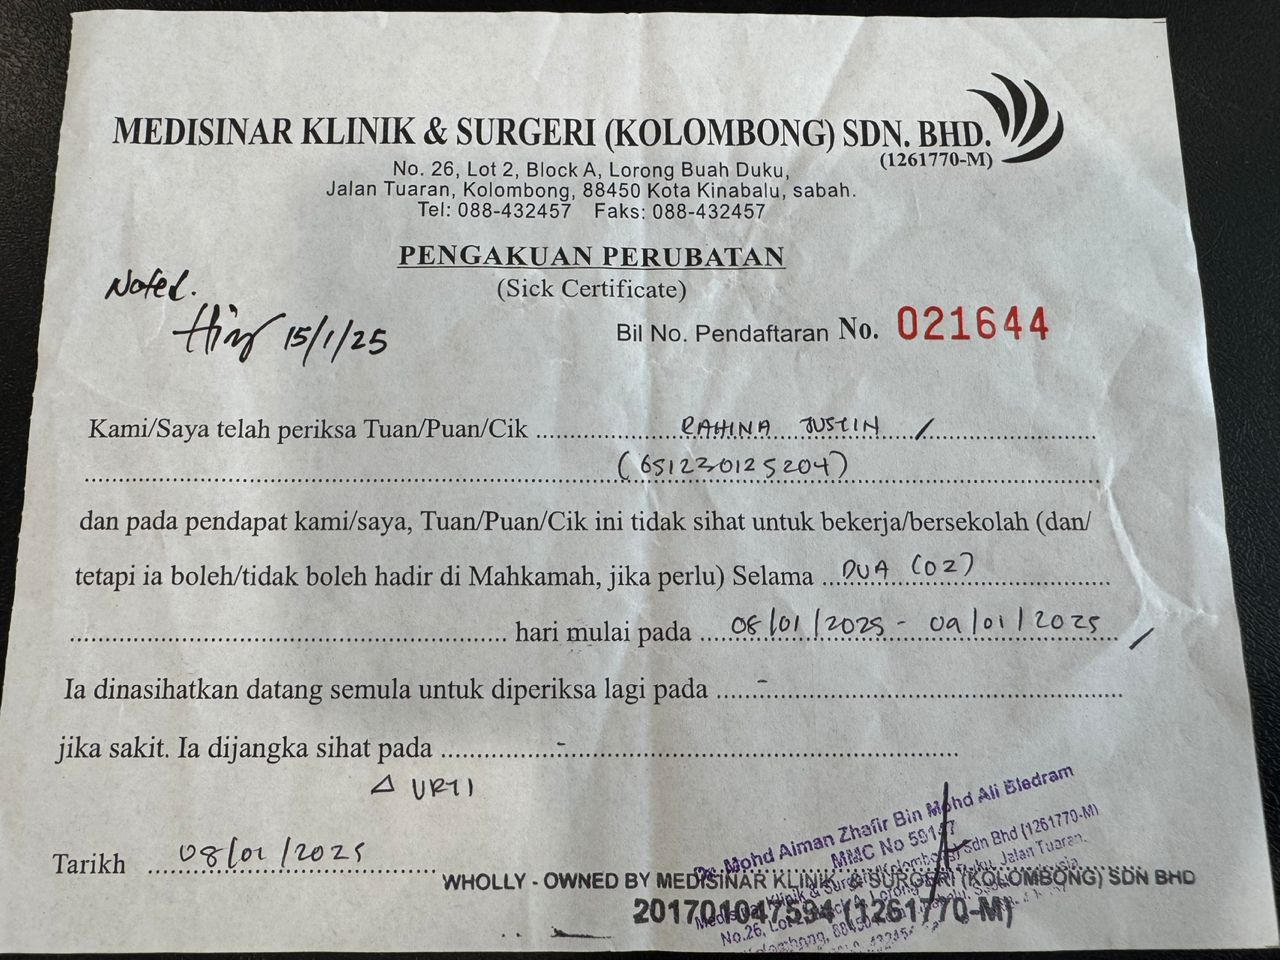 MEDISINAR KLINIK & SURGERI (KOLOMBONG) SDN. BHD.
(1261770-M)
No. 26, Lot 2, Block A, Lorong Buah Duku,
Jalan Tuaran, Kolombong, 88450 Kota Kinabalu, sabah.
Tel: 088-432457 Faks: 088-432457
PENGAKUAN PERUBATAN
(Sick Certificate)
Noted.
15/1/25
Bil No. Pendaftaran No. 021644
Kami/Saya telah periksa Tuan/Puan/Cik RAHINA JUSTIN
(651230125204)
dan pada pendapat kami/saya, Tuan/Puan/Cik ini tidak sihat untuk bekerja/bersekolah (dan/
tetapi ia boleh/tidak boleh hadir di Mahkamah, jika perlu) Selama DUA (02)
hari mulai pada 08/01/2025 - 09/01/2025
Ia dinasihatkan datang semula untuk diperiksa lagi pada -
jika sakit. Ia dijangka sihat pada -
△ URTI
Tarikh 08/01/2025
Dr. Mohd Aiman Zhafir Bin Mohd Ali Bledram
MMC No 59147
Medisinar Klinik & Surgeri (Kolombong) Sdn Bhd (1261770-M)
No.26, Lot 2, Block A, Lorong Buah Duku, Jalan Tuaran,
WHOLLY - OWNED BY MEDISINAR KLINIK & SURGERI (KOLOMBONG) SDN BHD
201701047594 (1261770-M)